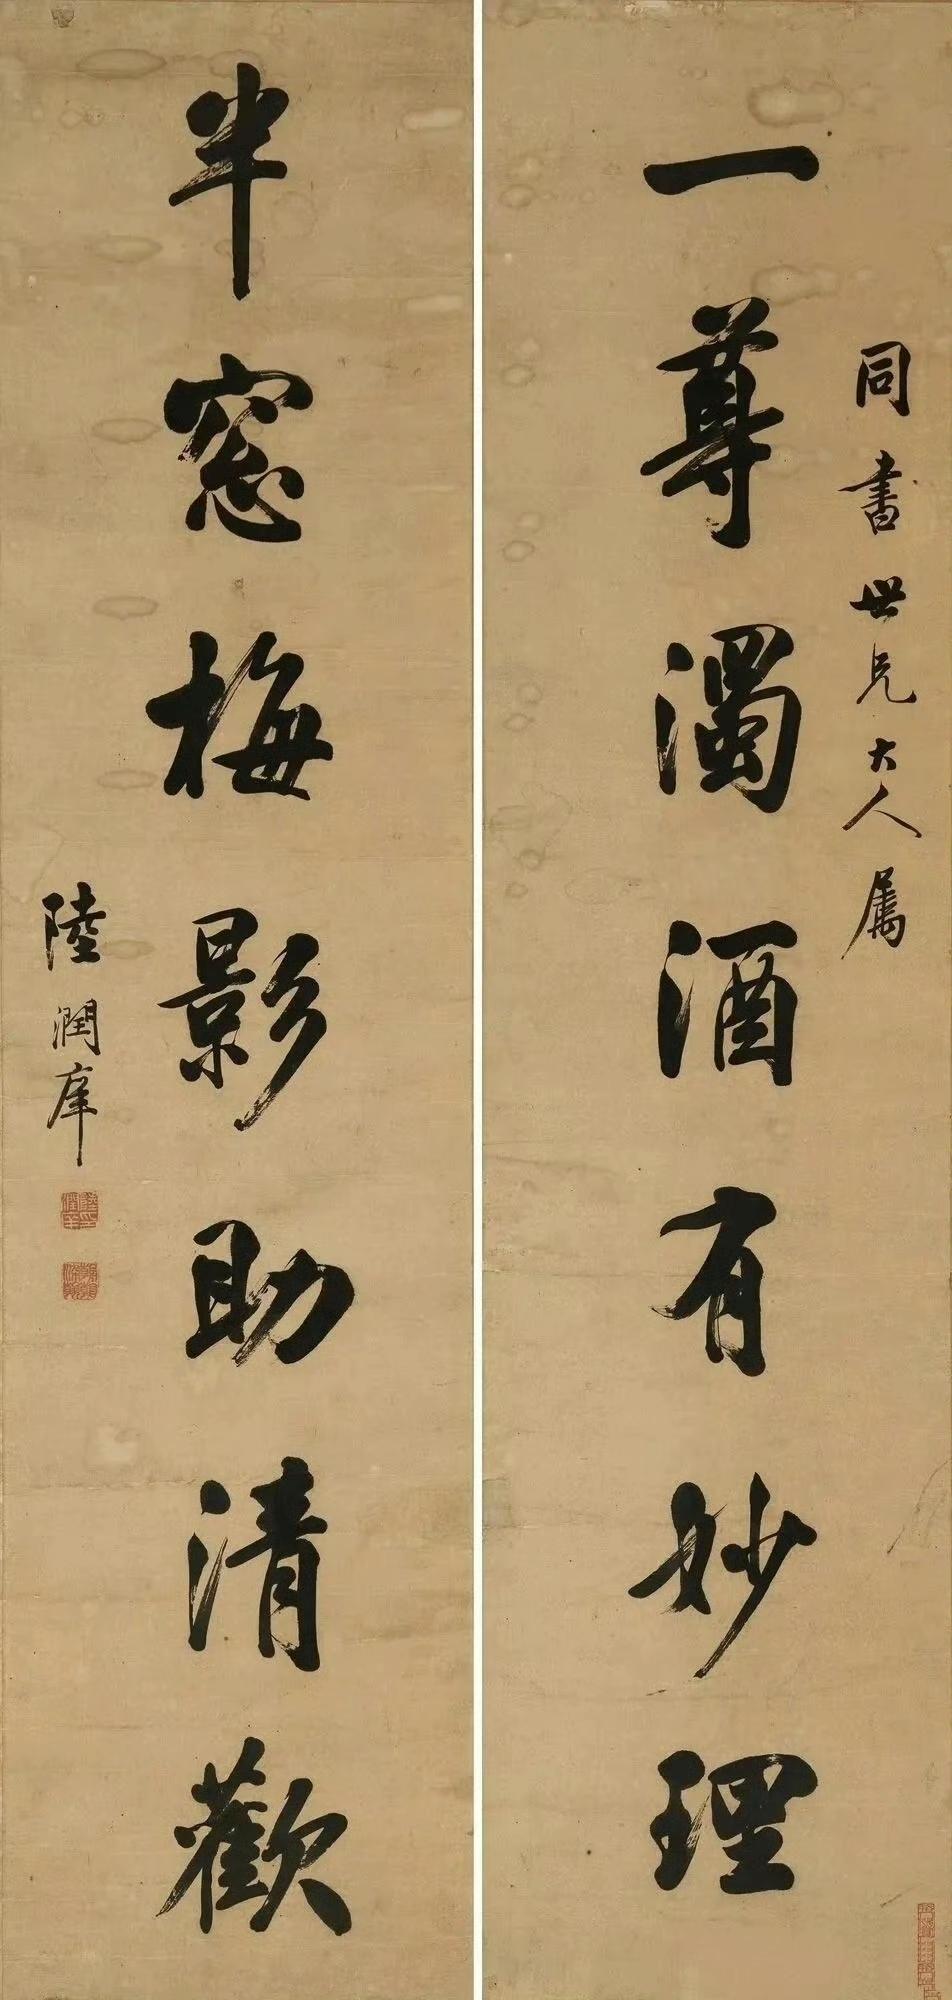 同書世兄大人屬
一尊濁酒有妙理
半窓梅影助清歡
陸潤庠